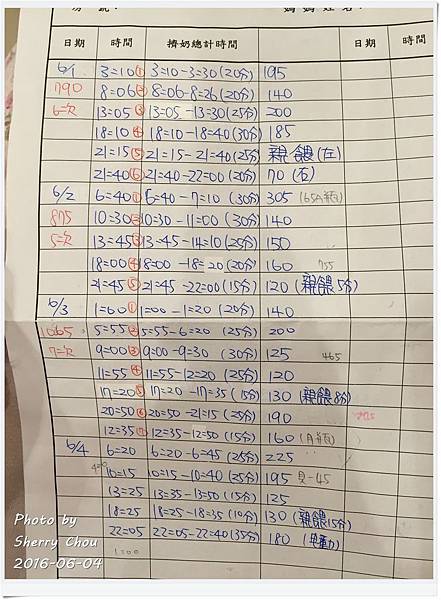 日期 時間 擠奶總計時間 日期 時間
6/1 3=10① 3=10-3=30(20分) 195
790 8=06② 8=06-8=26(20分) 140
6=次 13=05③ 13=05-13=30(25分) 200
18=10④ 18=10-18=40(30分) 185
21=15⑤ 21=15-21=40(25分) 親餵(左)
21=40⑥ 21=40-22=00(20分) 70(右)
6/2 6=40① 6=40-7=10(30分) 305
875 10=30② 10=30-11=00(30分) 140
5=次 13=45③ 13=45-14=10(25分) 150
18=00④ 18=00-18=20(20分) 160 755
21=45⑤ 21=45-22=00(15分) 120(親餵5分)
6/3 1=00① 1=00-1=20(20分) 140
1065 5=55② 5=55-6=20(25分) 200
7=次 9=00③ 9=00-9=30(30分) 125 465
11=55④ 11=55-12=20(25分) 120
17=20⑤ 17=20-17=35(15分) 130(親餵8分)
20=50⑥ 20=50-21=15(25分) 190
12=35⑦ 12=35-12=50(15分) 160
6/4 6=20 6=20-6=45(25分) 225
10=15 10=15-10=40(25分) 195
13=25 13=35-13=50(15分) 125
18=25 18=25-18=35(10分) 130(親餵15分)
22=05 22=05-22=40(35分) 180
1=00
Photo by
Sherry Chou
2016-06-04